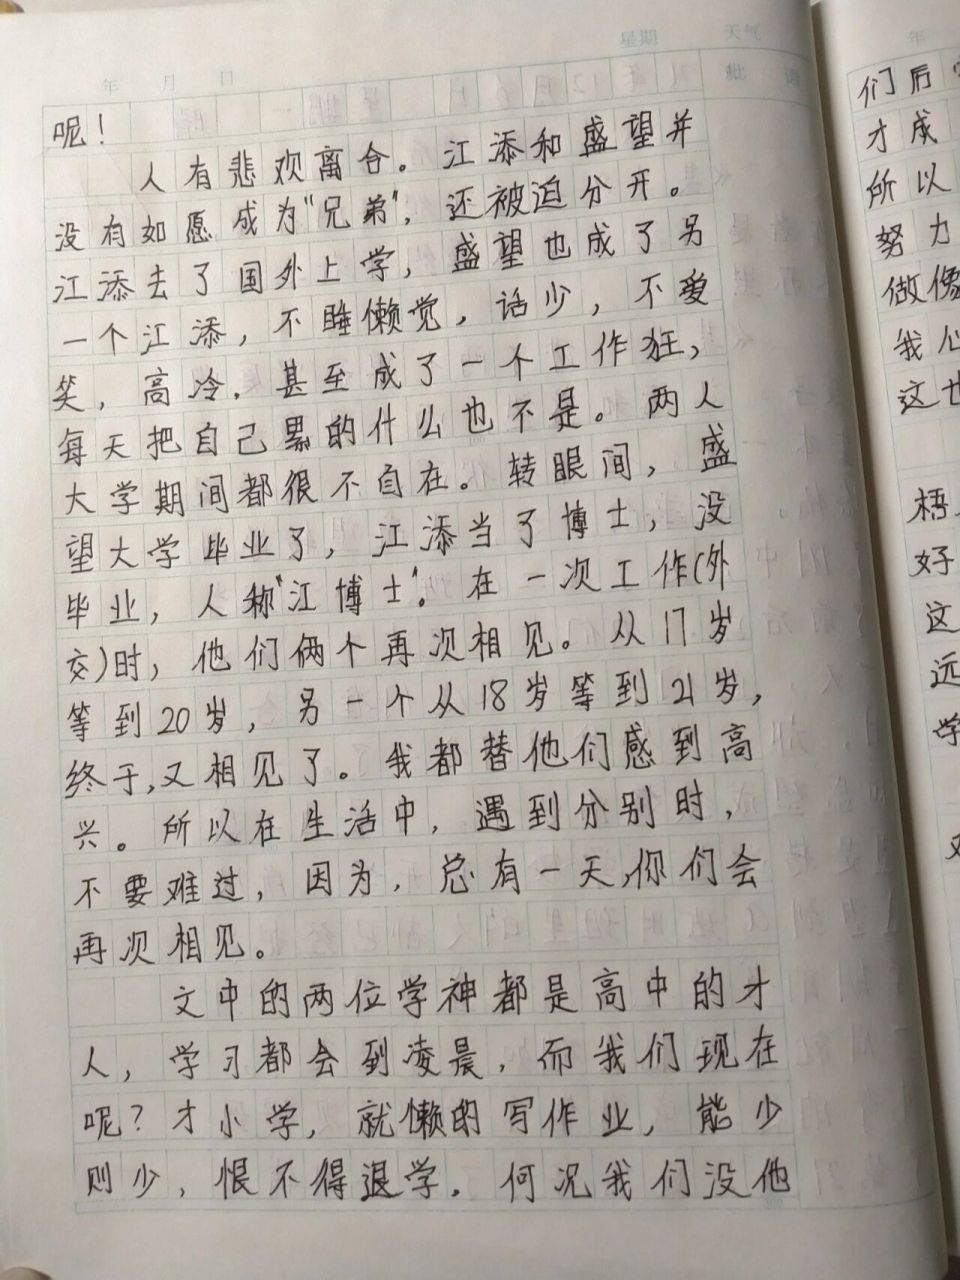 年 月 日 星期 天气
批 语
呢！
人有悲欢离合。江添和盛望并
没有如愿成为"兄弟"，还被迫分开。
江添去了国外上学，盛望也成了另
一个江添，不睡懒觉，话少，不爱
笑，高冷．甚至成了一个工作狂，
每天把自己累的什么也不是。两人
大学期间都很不自在。转眼间，盛
望大学毕业了，江添当了博士，没
毕业，人称"江博士"。在一次工作(外
交)时，他们俩个再次相见。从17岁
等到20岁，另一个从18岁等到21岁，
终于,又相见了。我都替他们感到高
兴。所以在生活中，遇到分别时，
不要难过，因为，总有一天,你们会
再次相见。
文中的两位学神都是高中的才
人，学习都会到凌晨，而我们现在
呢？才小学，就懒的写作业，能少
则少，恨不得退学．何况我们没他
年
们后
才成
所以
努力
做像
我心
这也
梧
好
这
远
学